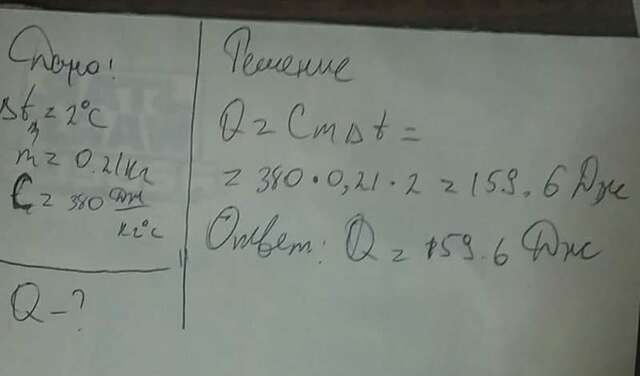 Дано!
Δt = 2°C
m = 0.21кг
C = 380 Дж/кг°C
Q - ?
Решение
Q = CmΔt =
= 380 • 0,21 • 2 = 159.6 Дж
Ответ: Q = 159.6 Дж